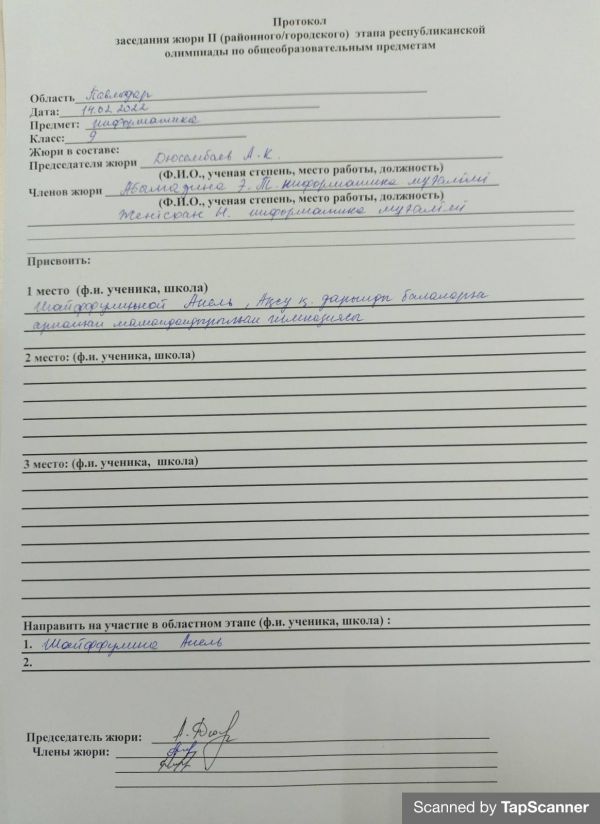 Протокол
заседания жюри II (районного/городского) этапа республиканской
олимпиады по общеобразовательным предметам
Область Павлодар
Дата: 14.02.2022
Предмет: информатика
Класс: 9
Жюри в составе:
Председателя жюри Дюсембаев А.К.
(Ф.И.О., ученая степень, место работы, должность)
Членов жюри Абылгазина Э.Т. информатика мұғалімі
(Ф.И.О., ученая степень, место работы, должность)
Жеңісхан Н. информатика мұғалімі
Присвоить:
1 место (ф.и. ученика, школа)
Анель, Ақсу қ. дарынды балаларға
арналған мамандандырылған гимназиясы
2 место: (ф.и. ученика, школа)
3 место: (ф.и. ученика, школа)
Направить на участие в областном этапе (ф.и. ученика, школа) :
1. Шайффулина Анель
2.
Председатель жюри:
Члены жюри:
Scanned by TapScanner